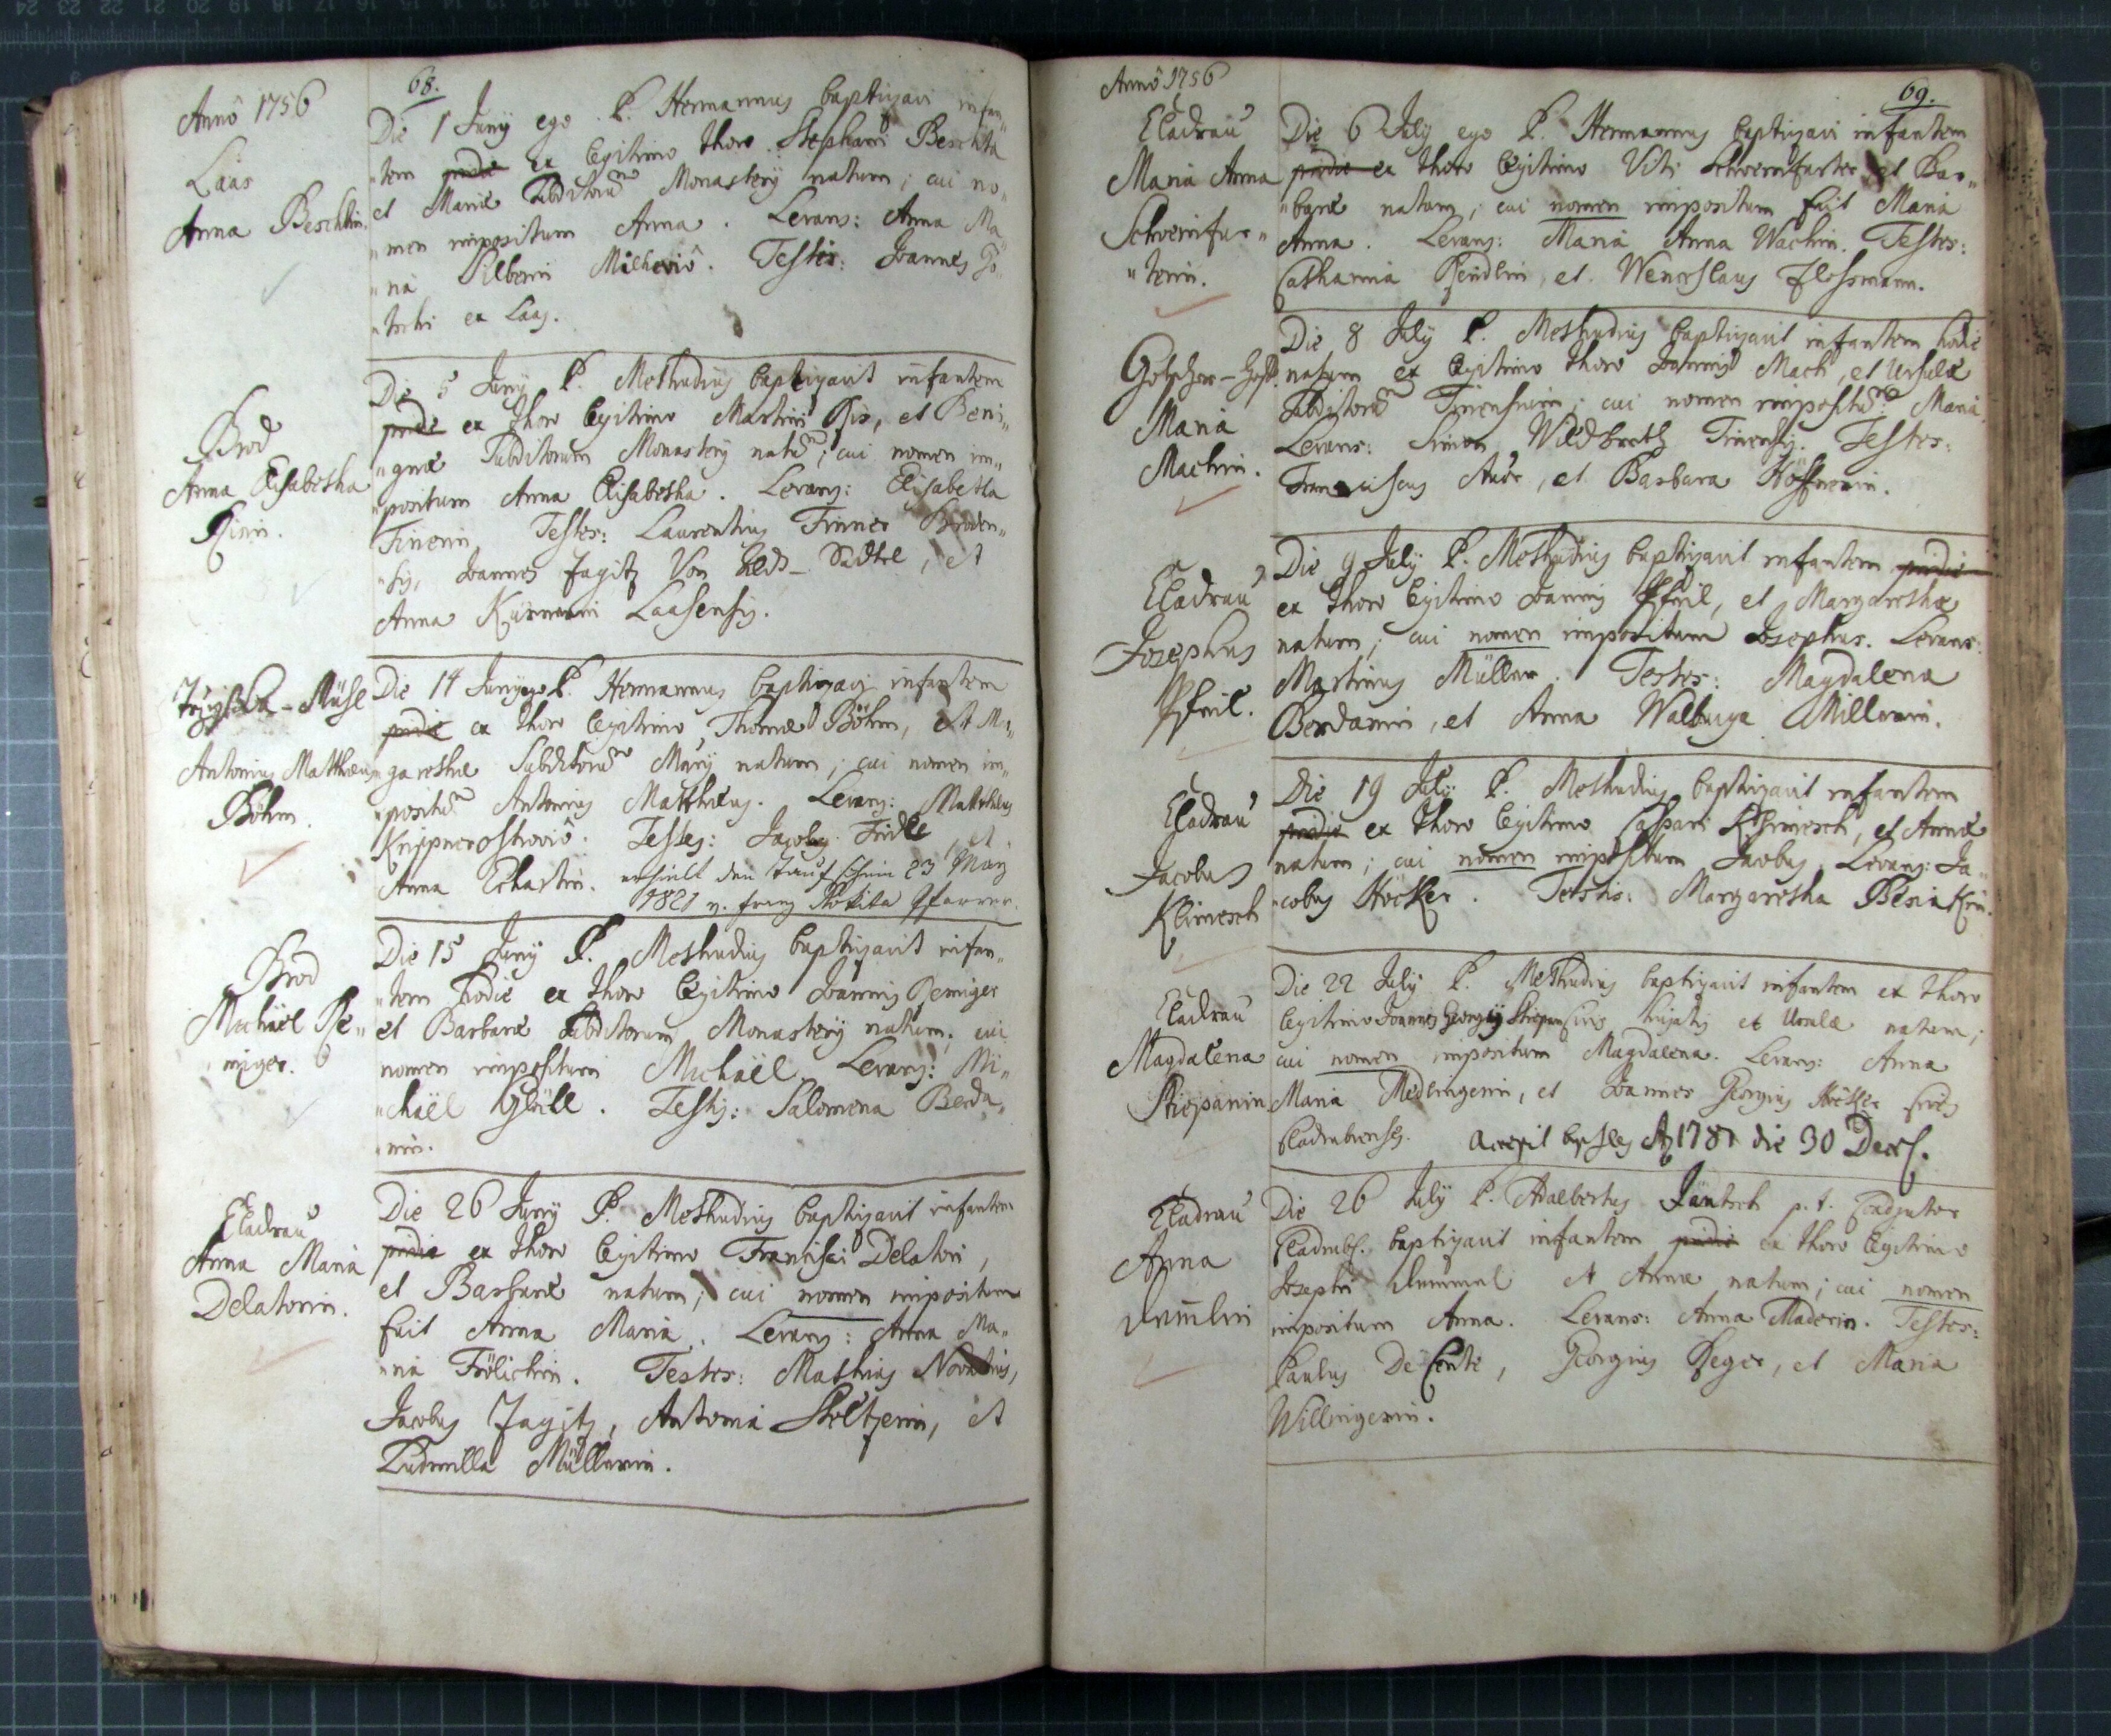 Anno 1756
68.
Laas
Anna Beschktin.
Die 1 Juny ego P. Hermannus baptizavi infan„
„tem pridie ex legitimo thoro Stephani Beschkta
et Mariæ Subditorum Monastery natum; cui no„
„men impositum Anna. Levans: Anna Ma„
„ria Milkoviô. Testis: Joannes
ex Laas.
Brod
Anna Elisabetha
Die 5 Juny P. Methudius baptizavit infantem
pridie ex thoro legitimo Martini Ris, et Beni„
„gnæ Subditorum Monastery natum; cui nomen im„
„positum Anna Elisabetha. Levans: Elisabetha
Tinerin Testes: Laurentius Tinner Broden„
„sis, Joannes Jagitz Von , et
Anna Laasensis.
Antonius Matthæus
Böhm.
Die 14 Juny ego P. Hermannus baptizavi infantem
pridie ex thoro legitimo Thomæ Böhm, et Mar„
„garethæ Subditorum natum; cui nomen im„
„positum Antonius Matthæus. Levans: Matthæus
Krippner Ostroviô. Testes: Jacobus Fridl, et
Anna erhielt den Taufschein 23 May
1821 v. Franz Pokita Pfarrer.
Brod
Michäel Re„
„miger.
Die 15 Juny P. Methudius baptizavit infan„
„tem hodie ex thoro legitimo Joannis Remiger
et Barbaræ Subditorum Monastery natum; cui
nomen impositum Michäel. Levans: Mi„
„chäel Testis: Salomena Berda„
„nin.
Cladrau
Anna Maria
Delatorin.
Die 26 Juny P. Methudius baptizavit infantem
pridie ex thoro legitimo Francisci Delatori,
et Barbaræ natum; cui nomen impositum
fuit Anna Maria. Levans: Anna Ma„
„ria Frölichin. Testes: Mathias
Jacobus Jagitz, Antonia Stöltzerin, et
Ludmilla Müllerin.
Anno 1756
69.
Cladrau
Maria Anna
Schweinfur„
„terin.
Die 6 July ego P. Hermannus baptizavi infantem
pridie ex thoro legitimo Viti Schweinfurter et Bar„
„baræ natum; cui nomen impositum fuit Maria
Anna. Levans: Maria Anna Wachin. Testes:
Catharina Reindlin, et Wenceslaus Flossmann.
Maria
Machin.
Die 8 July P. Methudius baptizavit infantem hodie
natum ex legitimo thoro Joannis Mach, et Ursulæ
Subditorum Tinensium; cui nomen impositum Maria
Levans: Simon Wildbrath Tinensis. Testes:
Franciscus , et Barbara Höffnerin.
Cladrau
Josephus
Pfeil.
Die 9 July P. Methudius baptizavit infantem pridie
ex thoro legitimo Joannis Pfeil, et Margarethæ
natum; cui nomen impositum Josephus. Levans:
Martinus Müller. Testes: Magdalena
Berdanin, et Anna Walburga Millerin.
Cladrau
Jacobus
Klimesch
Die 19 July P. Methudius baptizavit infantem
pridie ex thoro legitimo Caspari Klimesch, et Annæ
natum; cui nomen impositum Jacobus. Levans: Ja„
„cobus Höcker. Testis: Margaretha
Cladrau
Magdalena
Stiepanin
Die 22 July P. Methudius baptizavit infantem ex thoro
legitimo Joannes Georgÿ Stiepan Civis hujatis et Ursulæ natum;
cui nomen impositum Magdalena. Levans: Anna
Maria Medlingerin, et Joannes Georgius Höcker Civis
Cladrubensis. accepit 1787 die 30 Decb.
Cladrau
Anna
Die 26 July P. Adalbertus Jäntsch p. t. Coadjutor
Cladrubs. baptizavit infantem pridie ex thoro legitimo
Josephi et Annæ natum; cui nomen
impositum Anna. Levans: Anna Maderin. Testes:
Paulus De Conti, Georgius Reger, et Maria
Willingerin.